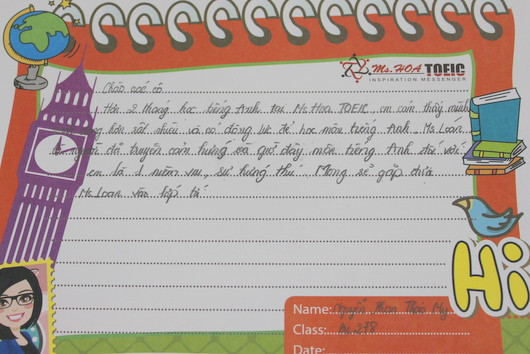 Ms. HOA TOEIC
INSPIRATION MESSENGER
Chào các cô
Hơn 2 tháng học tiếng Anh tại Ms Hoa TOEIC, em cảm thấy mình
hơn rất nhiều và có động lực để học môn tiếng Anh. Ms Loan
là người chị truyền cảm hứng và giờ đây môn tiếng Anh đối với
em là 1 niềm vui, sự hứng thú. Mong sẽ gặp
Ms Loan vào lớp
Hi
Name: Nguyễn Phan Thảo My
Class: 278
Date: